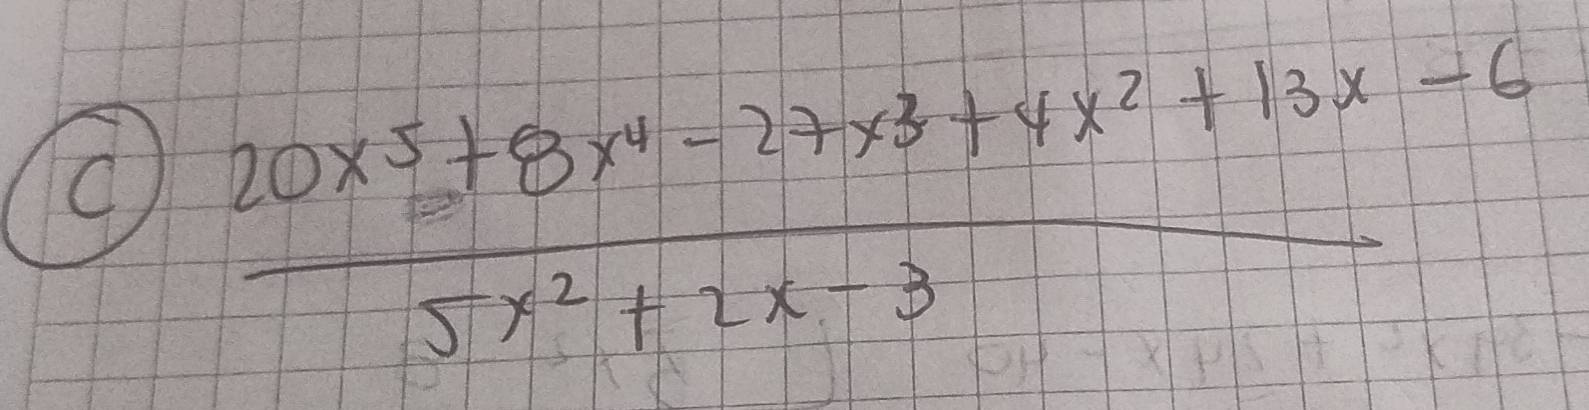 C 20x⁵ + 8x⁴ - 27x³ + 4x² + 13x - 6
5x² + 2x - 3